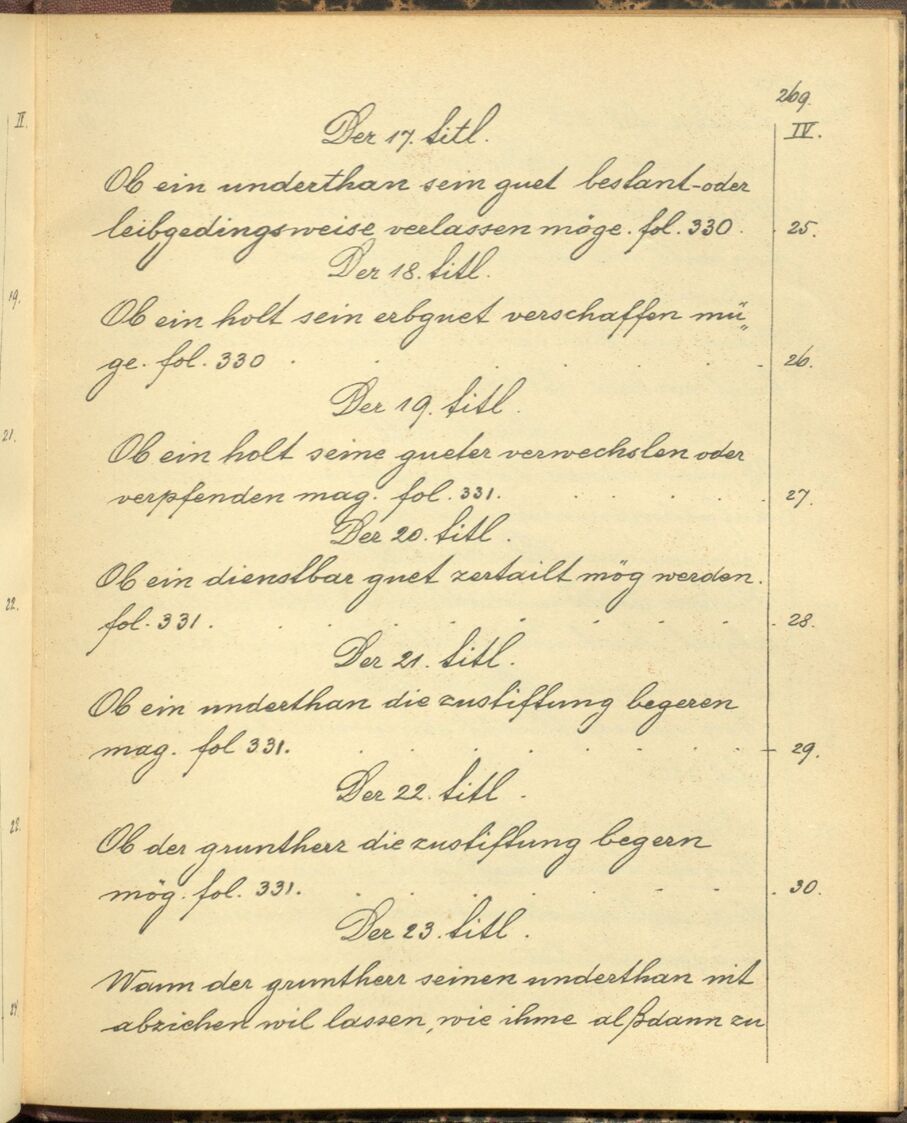 269.
IV.
Der 17. titl.
Ob ein underthan sein guet bestant-oder
leibgedingsweise verlassen möge. fol. 330. 25.
Der 18. titl.
Ob ein holt sein erbguet verschaffen mü„
ge. fol. 330 . . . . . . 26.
Der 19. titl.
Ob ein holt seine gueter verwechslen oder
verpfenden mag. fol. 331. . . . . 27.
Der 20. titl.
Ob ein dienstbar guet zertailt mög werden.
fol. 331. . . . . . . . . 28.
Der 21. titl.
Ob ein underthan die zustifftung begeren
mag. fol 331. . . . . . . . 29.
Der 22. titl.
Ob der gruntherr die zustifftung begern
mög. fol. 331. . . . . . . . 30.
Der 23. titl.
Wann der gruntherr seinen underthan nit
abziehen wil lassen, wie ihme alßdann zu
II.
19.
21.
22.